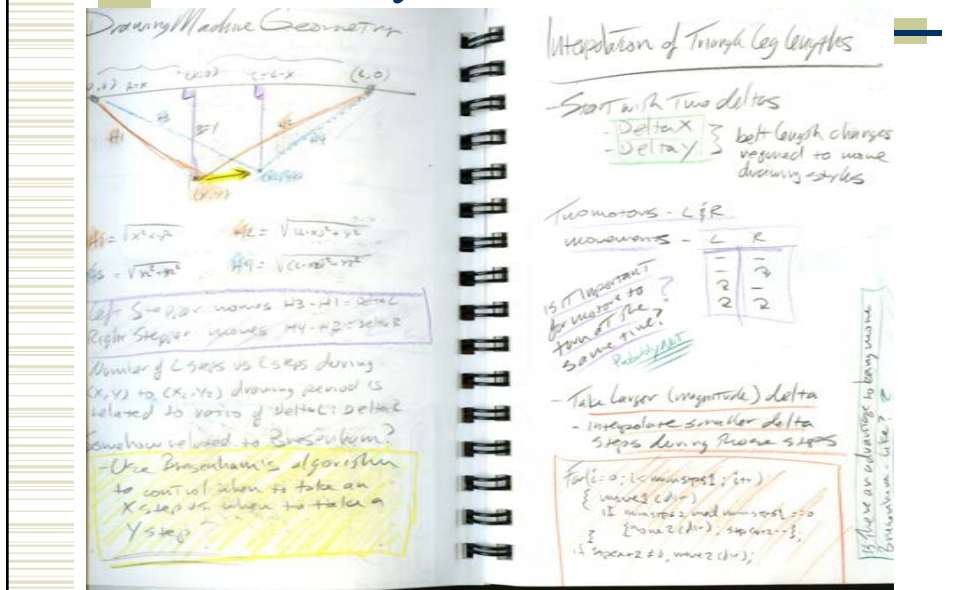 Drawing Machine Geometry
(L,0)
H1
H3
B=Y
(X,Y)
H1 = √X²+Y²
H2 = √(L-X)²+Y²
H3 = √X2²+Y2²
H4 = √(L-X2)²+Y2²
Left Stepper moves H3-H1 = DeltaL
Right Stepper moves H4-H2 = DeltaR
Number of L steps vs R steps during
(X,Y) to (X2,Y2) drawing period is
related to ratio of DeltaL : DeltaR
Somehow related to Bresenham?
- Use Bresenham's algorithm
to control when to take an
X step vs when to take a
Y step?
Interpolation of Triangle Leg lengths
- Start with Two deltas
- DeltaX
- DeltaY
belt length changes
required to move
drawing stylus
Two motors - L & R
movements - L R
Is it important
for motors to
turn at the
same time?
Probably Not
- Take Larger (magnitude) delta
- interpolate smaller delta
steps during those steps
for(i=0; i<numsteps1; i++)
{ move1(dir)
if numsteps2 mod numsteps1 ==0
{move2(dir); stepcnt2--};
}
if stepcnt2 ≠ 0, move2(dir);
Is there an advantage to being more
Bresenham-like?